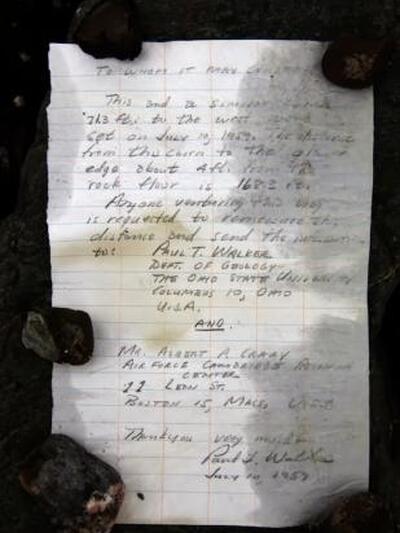 To Whom it May Concern
This and a similar cairn
71.3 ft. to the west were
set on July 10, 1959. The distance
from this cairn to the glacier
edge about 4 ft. from the
rock floor is 168.3 ft.
Anyone venturing this way
is requested to remeasure this
distance and send the information
to: Paul T. Walker
Dept. of Geology
The Ohio State University
Columbus 10, Ohio
U.S.A.
AND.
Mr. Albert P. Crary
Air Force Cambridge Research
Center
11 Leon St.
Boston 15, Mass, USA
Thank you very much
Paul T. Walker
July 10, 1959